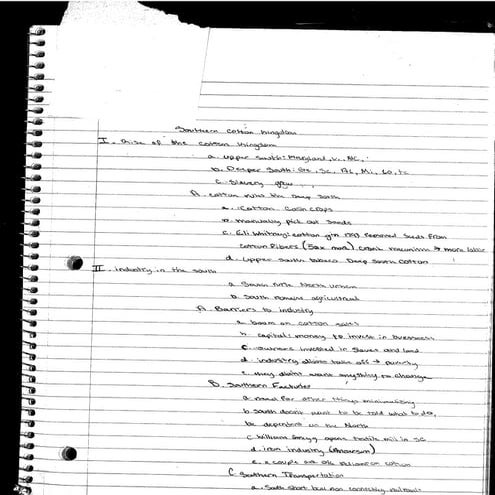 Southern Cotton Kingdom
I. Rise of the Cotton Kingdom
a. upper South: Maryland, V., NC,
b. Deeper South: Ga, SC, AL, Mi, La, tx
c. Slavery grew
A. Cotton rules the Deep South
a. Cotton Cash crops
b. manually pick out seeds
c. Eli Whitney: cotton gin 1793 removed seeds from
cotton fibers (50x more) → more labor
d. upper South tobacco Deep South cotton
II. industry in the South
a. South rural North urban
b. South remains agricultural
A. Barriers to industry
a. boom on cotton sales
b. capital: money to invest in businesses
c. invested in slaves and land
d. industry doesn't take off → poverty
e. they didnt want anything to change
B. Southern Factories
a. need for other things
b. South doesn't want to be told what to do,
be dependent on the North
c. William Gregg opens textile mill in SC
d. iron industry (Anderson)
e. a couple
C. Southern Transportation
a. South short local non connecting railroads